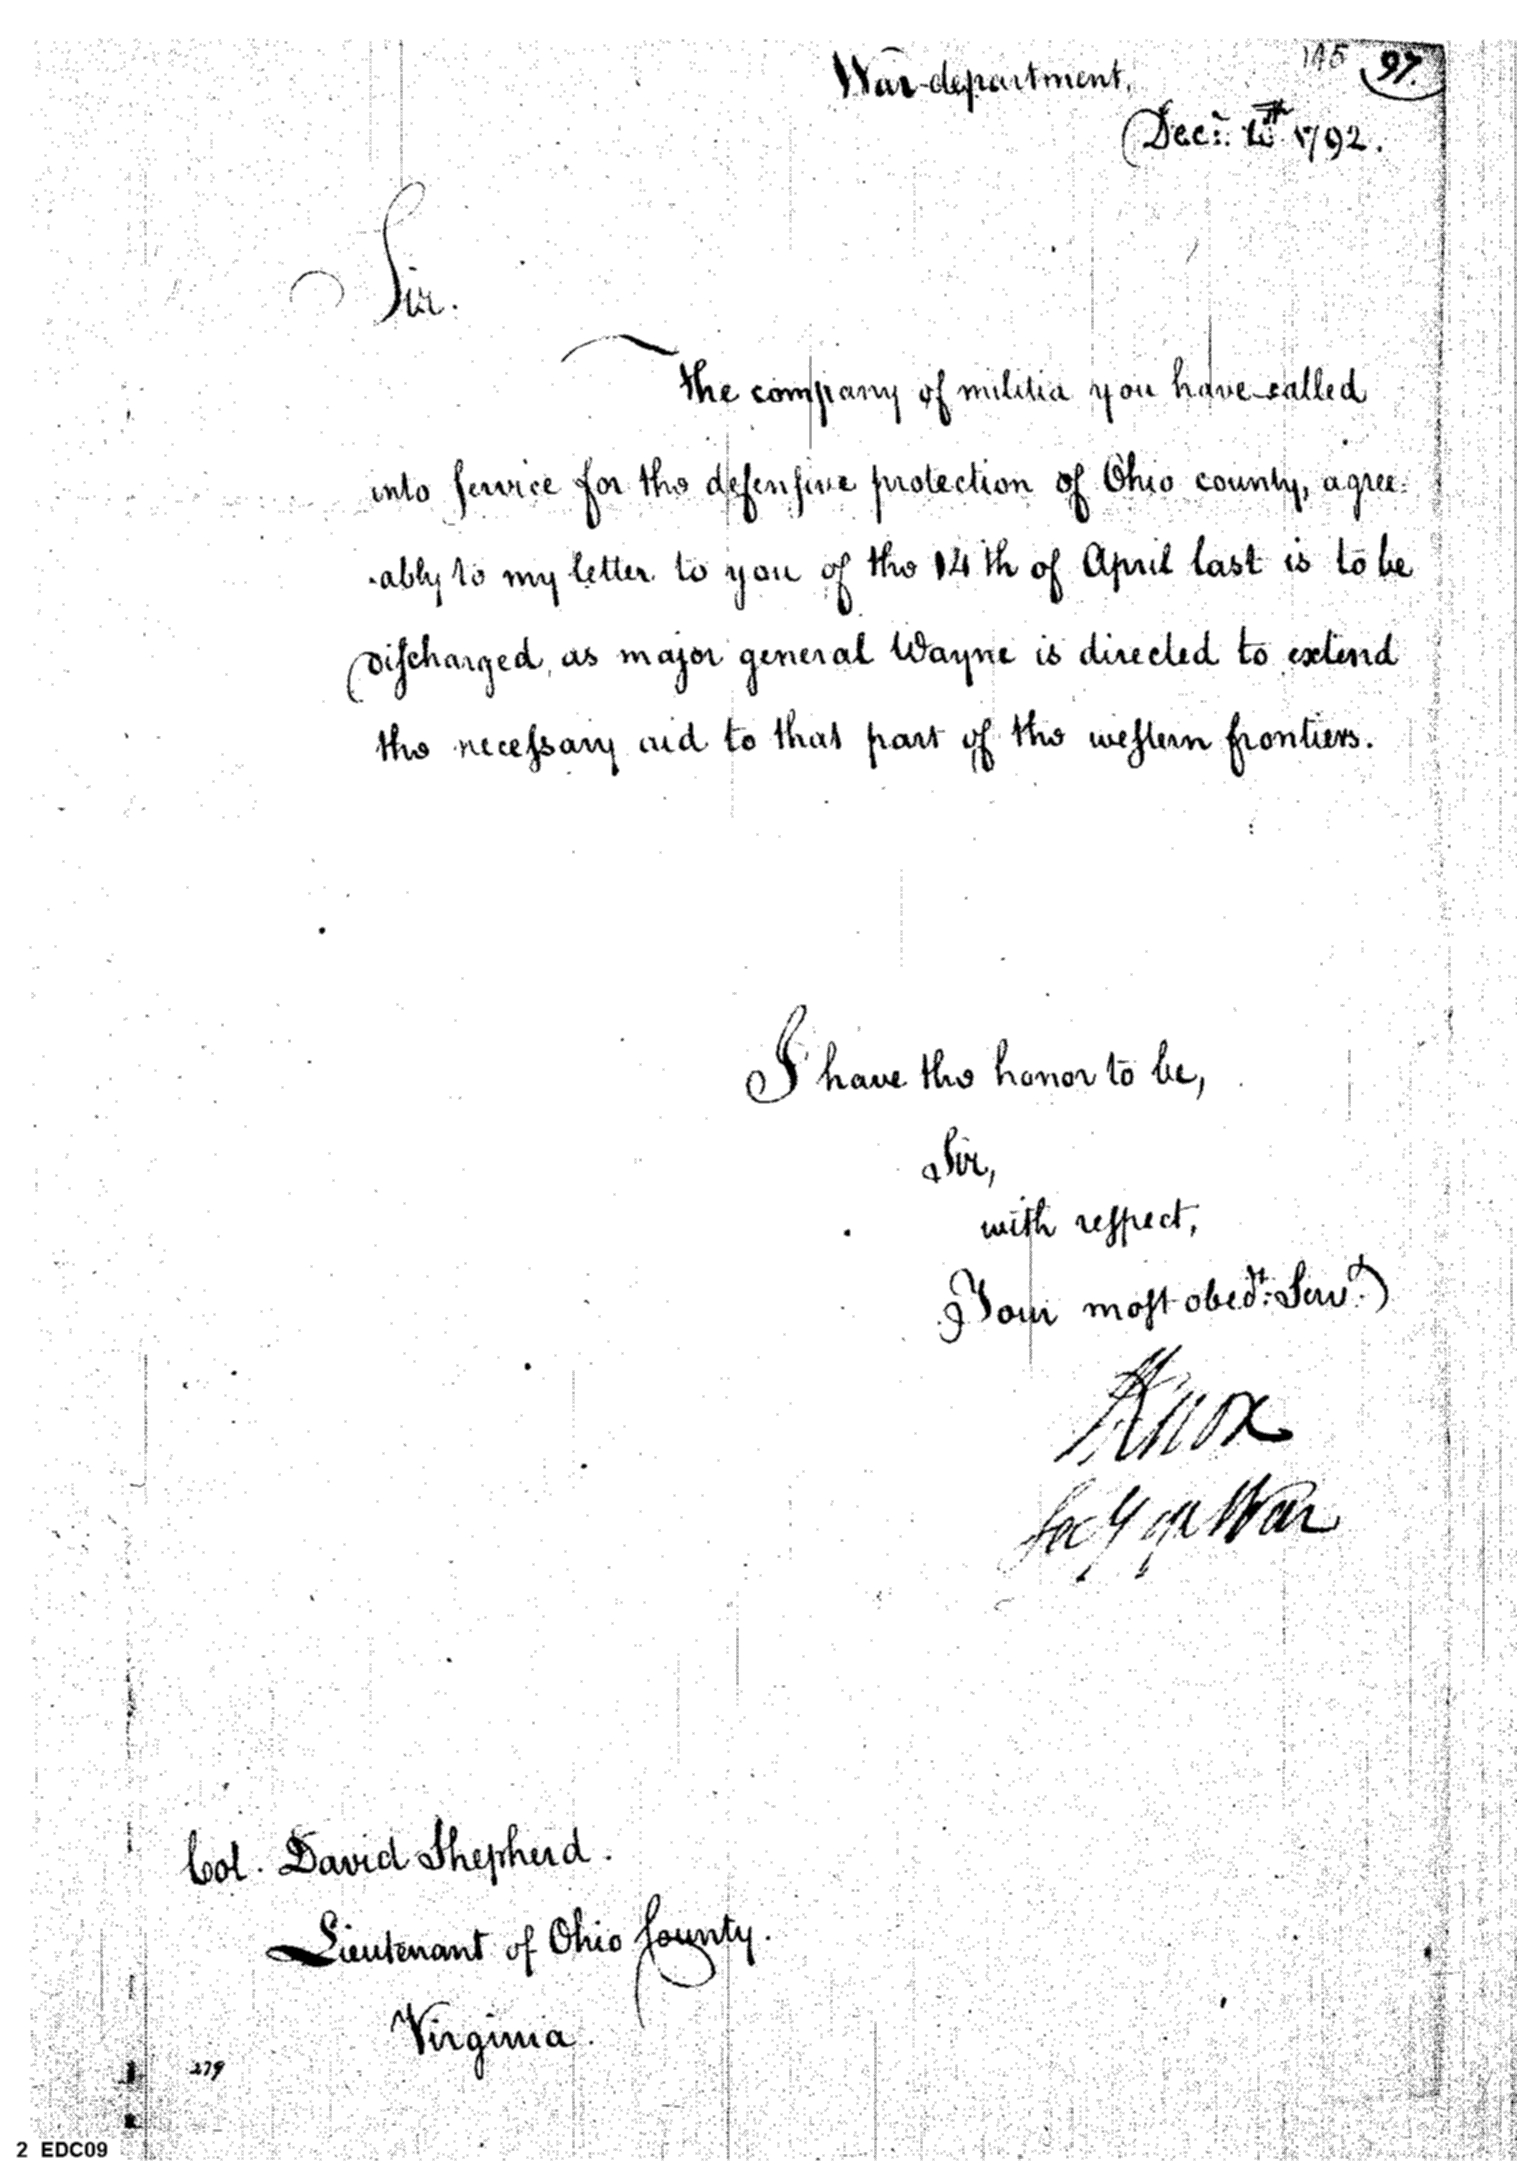 145 97.
War-department,
Decr. 1792.
Sir.
The company of militia you have called
into service for the defensive protection of Ohio county, agree-
ably to my letter to you of the 14th of April last is to be
discharged, as major general Wayne is directed to extend
the necessary aid to that part of the western frontiers.
I have the honor to be,
Sir,
with respect,
Your most obedt. Servt.
HKnox
Secy of War
Col. David Shepherd.
Lieutenant of Ohio County.
Virginia.
279
2 EDC09